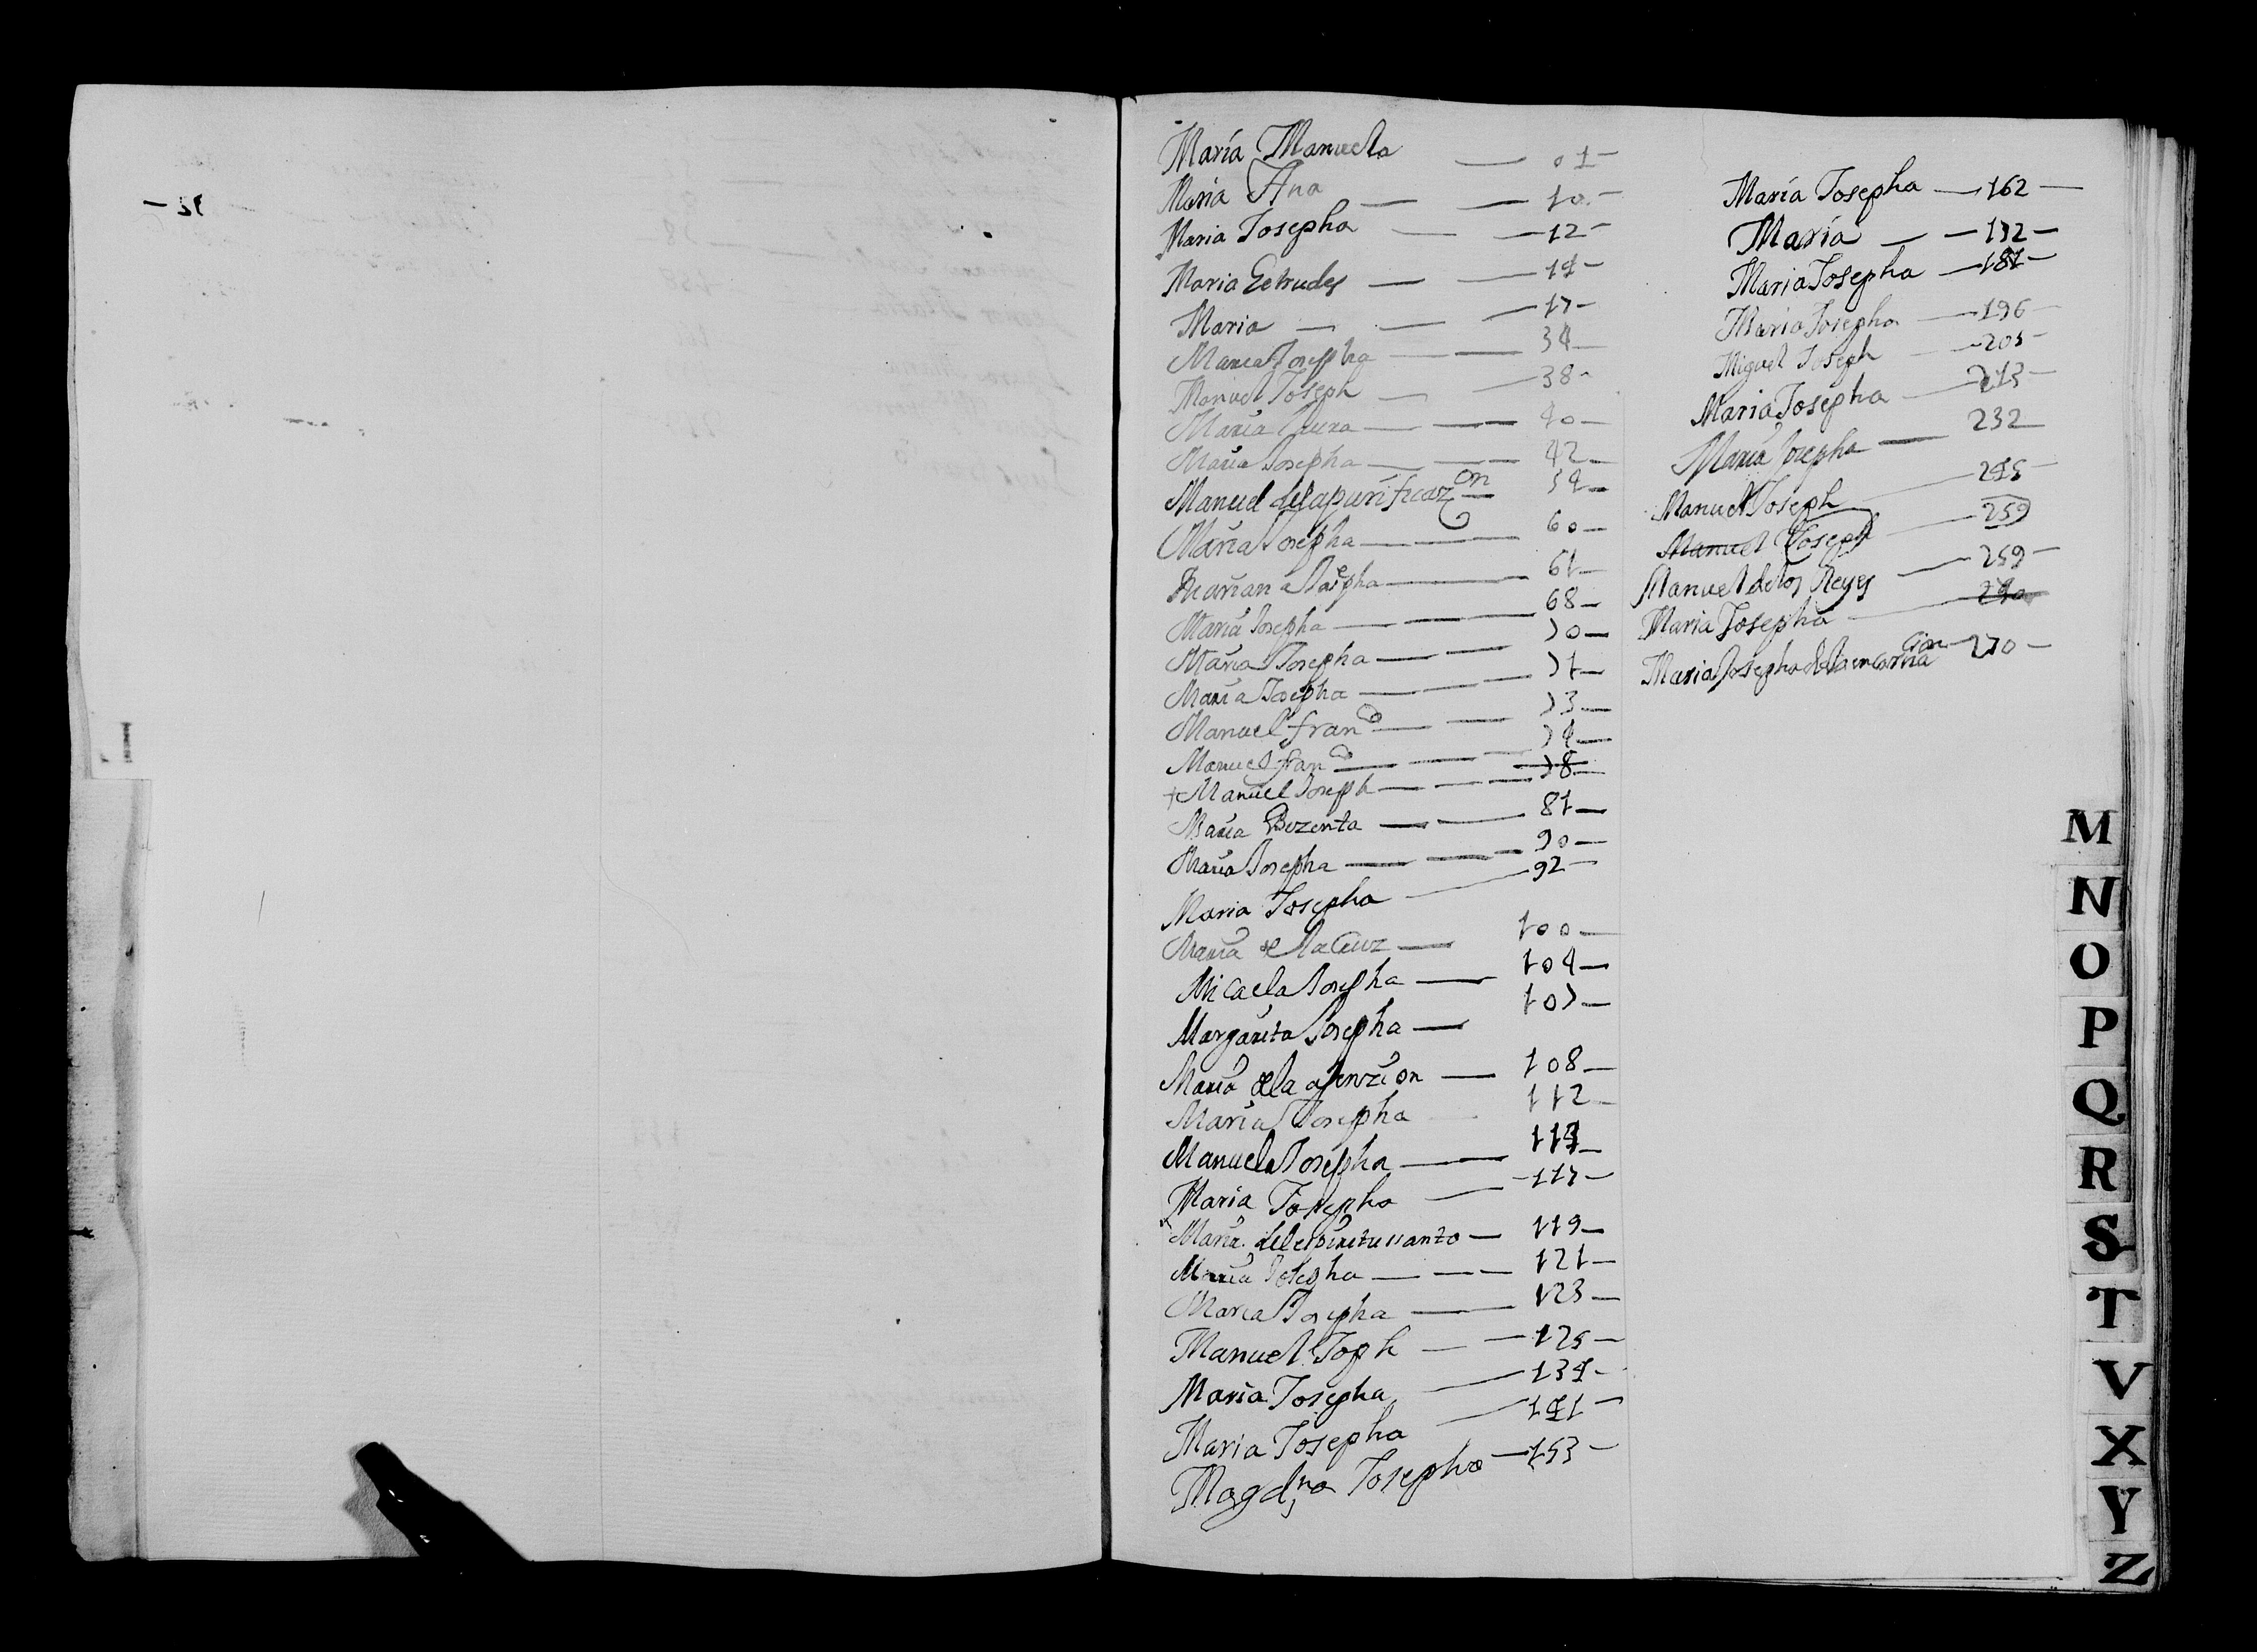 María Manuela — 01
Maria Ana — 10
Maria Josepha — 12
Maria Getrudes — 14
Maria — 17
Maria Josepha — 34
Manuel Joseph — 38
Maria Laura — 40
Maria Josepha — 42
Manuel de la purificazon — 54
Maria Josepha — 60
Mariana Josepha — 61
Maria Josepha — 68
Maria Josepha — 70
Maria Josepha — 71
Manuel franco — 73
Manuel franco — 74
+ Manuel Joseph — 78
Maria Bizenta — 81
Maria Josepha — 90
Maria Josepha — 92
Maria de la Cruz — 100
Micaela Josepha — 104
Margarita Josepha — 107
Maria de la asenzion — 108
Maria Josepha 112
Manuela Josepha — 114
Maria Josepha — 117
Maria del espiritu santo — 119
Maria Josepha — 121
Maria Josepha — 123
Manuel Joph — 125
Maria Josepha — 134
Maria Josepha — 141
Magdna Josepha — 153
María Josepha — 162
María — 172
Maria Josepha — 181
Maria Josepha — 196
Miguel Joseph — 205
Maria Josepha — 213
Maria Josepha — 232
Manuel Joseph — 245
Manuel Joseph — 259
Manuel de los Reyes — 259
Maria Josepha
Maria Josepha de la encarnacion — 270
M
N
O
P
Q
R
S
T
V
X
Y
Z